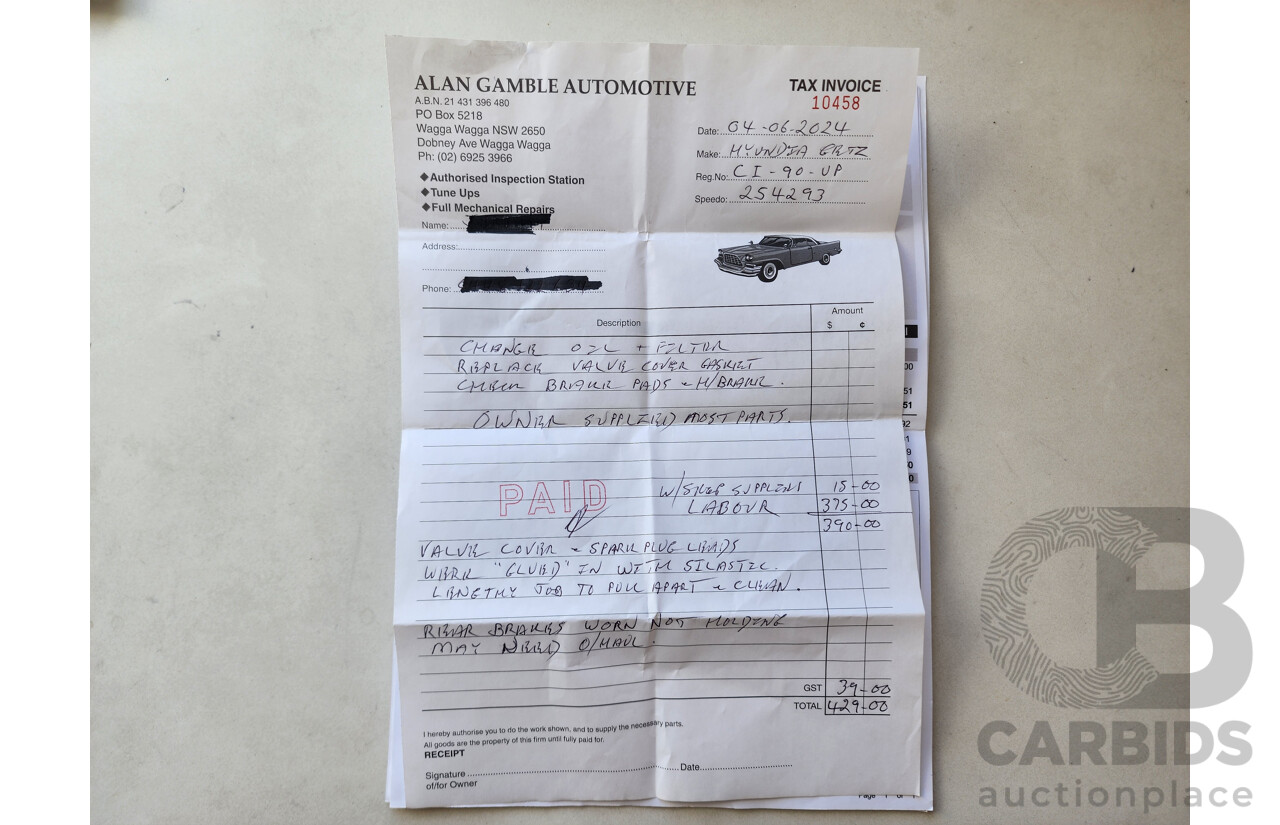 ALAN GAMBLE AUTOMOTIVE
A.B.N. 21 431 396 480
PO Box 5218
Wagga Wagga NSW 2650
Dobney Ave Wagga Wagga
Ph: (02) 6925 3966
◆Authorised Inspection Station
◆Tune Ups
◆Full Mechanical Repairs
TAX INVOICE
10458
Date: 04-06-2024
Make: HYUNDIA GETZ
Reg.No: CI-90-UP
Speedo: 254293
Name:
Address:
Phone:
Description
Amount
$ ¢
CHANGE OIL + FILTER
REPLACE VALVE COVER GASKET
CHECK BRAKE PADS + H/BRAKE.
OWNER SUPPLIED MOST PARTS.
PAID
W/SHOP SUPPLIES 15-00
LABOUR 375-00
390-00
VALVE COVER + SPARK PLUG LEADS
WERE "GLUED" IN WITH SILASTIC.
LENGTHY JOB TO PULL APART + CLEAN.
REAR BRAKES WORN NOT HOLDING
MAY NEED O/HAUL.
GST 39-00
TOTAL 429-00
I hereby authorise you to do the work shown, and to supply the necessary parts.
All goods are the property of this firm until fully paid for.
RECEIPT
Signature Date
of/for Owner
00
51
51
92
Page 1 of
CB
CARBIDS
auctionplace